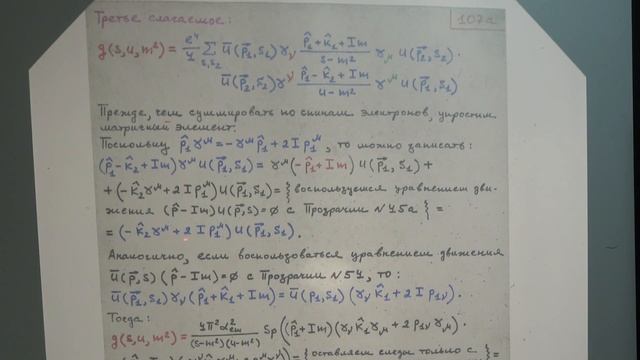 Третье слагаемое:
107а
g(s,u,m²) = e⁴/4 Σ_{s₁,s₂} ū(p⃗₁,s₁) γ_ν (p̂₁+k̂₁+Im)/(s-m²) γ_μ u(p⃗₂,s₂) ·
ū(p⃗₂,s₂) γ^ν (p̂₁-k̂₂+Im)/(u-m²) γ^μ u(p⃗₁,s₁)
Прежде, чем суммировать по спинам электронов, упростим
матричный элемент.
Поскольку p̂₁γ^μ = -γ^μ p̂₁ + 2I p₁^μ, то можно записать:
(p̂₁-k̂₂+Im)γ^μ u(p⃗₁,s₁) = γ^μ(-p̂₁+Im) u(p⃗₁,s₁) +
+(-k̂₂γ^μ+2I p₁^μ) u(p⃗₁,s₁) = { воспользуемся уравнением дви-
жения (p̂-Im)u(p⃗,s)=0 с Прозрачки N45а } =
= (-k̂₂γ^μ+2I p₁^μ) u(p⃗₁,s₁).
Аналогично, если воспользоваться уравнением движения
ū(p⃗,s)(p̂-Im)=0 с Прозрачки N54, то:
ū(p⃗₁,s₁)γ_ν(p̂₁+k̂₁+Im) = ū(p₁,s₁)(γ_ν k̂₁+2I p₁ν).
Тогда:
g(s,u,m²) = 4π²α²_em/((s-m²)(u-m²)) Sp((p̂₁+Im)(γ_ν k̂₁γ_μ+2p₁ν γ_μ)·
= { оставляем следы только с